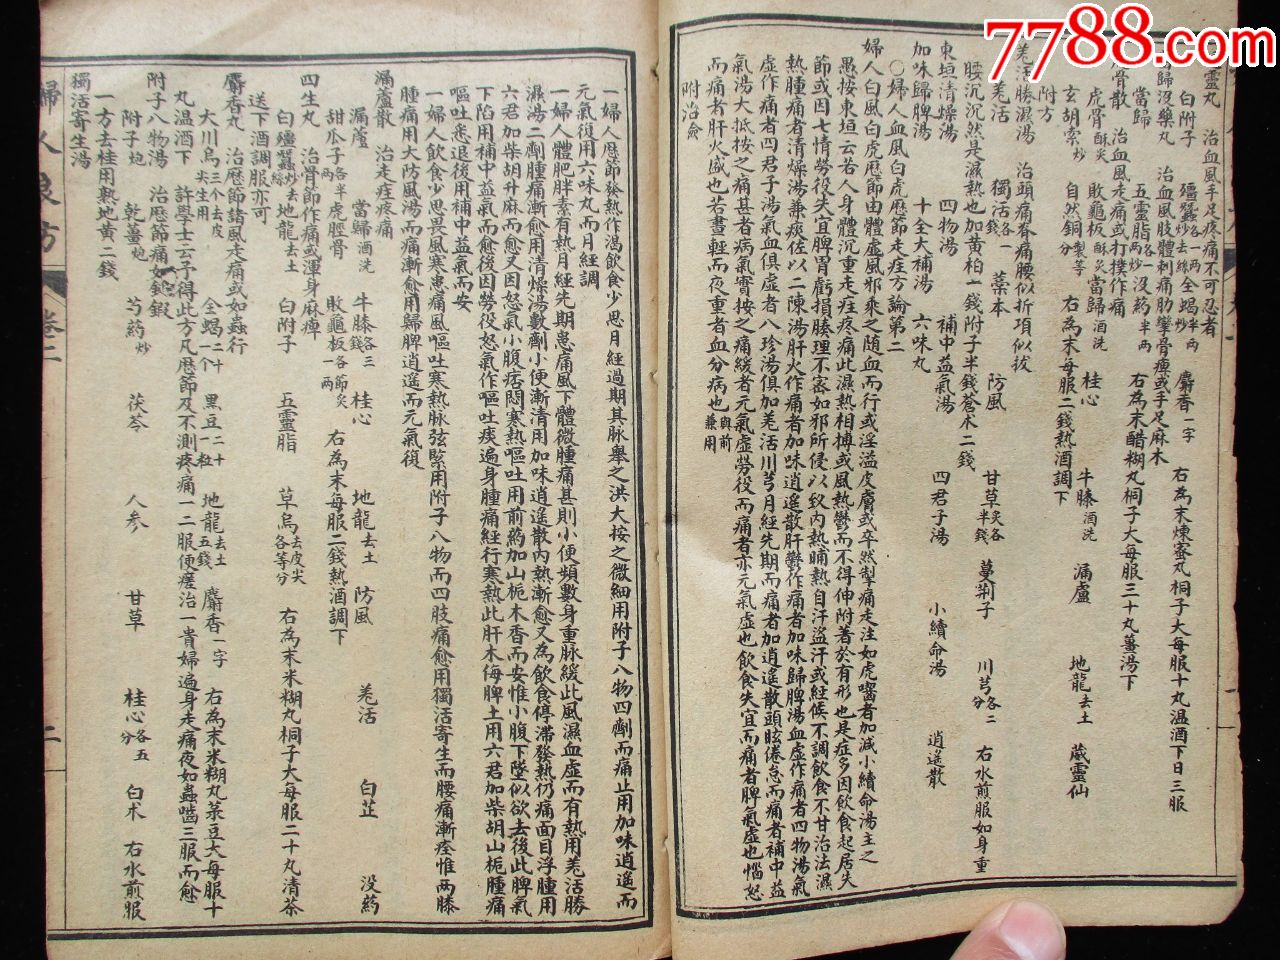 7788.com
靈丸　治血風手足疼痛不可忍者
白附子　殭蠶各一兩炒去絲　全蝎半兩炒　麝香一字　右為末煉蜜丸桐子大每服十丸溫酒下日三服
歸沒藥丸　治血風肢體刺痛肋攣骨痹或手足麻木
當歸　五靈脂各一兩炒　沒藥半兩　右為末醋糊丸桐子大每服三十丸薑湯下
虎骨散　治血風走痛或打撲作痛
虎骨酥炙　敗龜板酥炙　當歸酒洗　桂心　牛膝酒洗　漏蘆　地龍去土　葳靈仙
玄胡索炒　自然銅製等分　右為末每服二錢熱酒調下
附方
羌活勝濕湯　治頭痛脊痛腰似折項似拔
羌活　獨活各一錢　藁本　防風　甘草炙各半錢　蔓荆子　川芎各二分　右水煎服如身重
腰沉沉然是濕熱也加黃柏一錢附子半錢蒼朮二錢
東垣清燥湯　四物湯　補中益氣湯　四君子湯　小續命湯　逍遙散
加味歸脾湯　十全大補湯　六味丸
○婦人血風白虎歷節走疰方論第二
婦人白風白虎歷節由體虛風邪乘之隨血而行或淫溢皮膚或卒然掣痛走注如虎嚙者加減小續命湯主之
愚按東垣云若人身體沉重走疰疼痛此濕熱相搏或風熱鬱而不得伸附著於有形也是症多因飲食起居失
節或因七情勞役失宜脾胃虧損腠理不密如邪所侵以致內熱晡熱自汗盜汗或經候不調飲食不甘治法濕
熱腫痛者清燥湯兼痰佐以二陳湯肝火作痛者加味逍遙散肝鬱作痛者加味歸脾湯血虛作痛者四物湯氣
虛作痛者四君子湯氣血俱虛者八珍湯俱加羌活川芎月經先期而痛者加逍遙散頭眩倦怠而痛者補中益
氣湯大抵按之痛甚者病氣實按之痛緩者元氣虛勞役而痛者亦元氣虛也飲食失宜而痛者脾氣虛也惱怒
而痛者肝火盛也若晝輕而夜重者血分病也與前兼用
附治驗
一婦人歷節發熱作渴飲食少思月經過期其脉舉之洪大按之微細用附子八物四劑而痛止用加味逍遙而
元氣復用六味丸而月經調
一婦人體肥胖素有熱月經先期患痛風下體微腫痛甚則小便頻數身重脉緩此風濕血虛而有熱用羌活勝
濕湯二劑腫痛漸愈用清燥湯數劑小便漸清用加味逍遙散內熱漸愈又為飲食停滯發熱仍痛面目浮腫用
六君加柴胡升麻而愈又因怒氣小腹痞悶寒熱嘔吐用前藥加山梔木香而安惟小腹下墜似欲去後此脾氣
下陷用補中益氣而愈後因勞役怒氣作嘔吐痰遍身腫痛經行寒熱此肝木侮脾土用六君加柴胡山梔腫痛
嘔吐悉退後用補中益氣而安
一婦人飲食少思畏風寒患痛風嘔吐寒熱脉弦緊用附子八物而四肢痛愈用獨活寄生而腰痛漸痊惟兩膝
腫痛用大防風湯而痛漸愈用歸脾逍遙而元氣復
漏蘆散　治走疰疼痛
漏蘆　當歸酒洗　牛膝各三錢　桂心　地龍去土　防風　羌活　白芷　沒药
甜瓜子各半兩　虎脛骨　敗龜板各節炙一兩　右為末每服二錢熱酒調下
四生丸　治骨節作痛或渾身麻痺
白殭蠶炒去絲　地龍去土　白附子　五靈脂　草烏去皮尖各等分　右為末米糊丸桐子大每服二十丸清茶
送下酒調服亦可
麝香丸　治歷節諸風走痛或如蟲行
大川烏三个去皮尖生用　全蝎二十个　黑豆二十一粒　地龍去土五錢　麝香一字　右為末米糊丸菉豆大每服十
丸溫酒下　許學士云予得此方凡歷節及不測疼痛一二服便瘥治一貴婦遍身走痛夜如蟲嚙三服而愈
附子八物湯　治歷節痛如錘鍜
附子炮　乾薑炮　芍药炒　茯苓　人參　甘草　桂心各五分　白朮　右水煎服
一方去桂用熟地黃二錢
獨活寄生湯
婦人良方
卷二
二